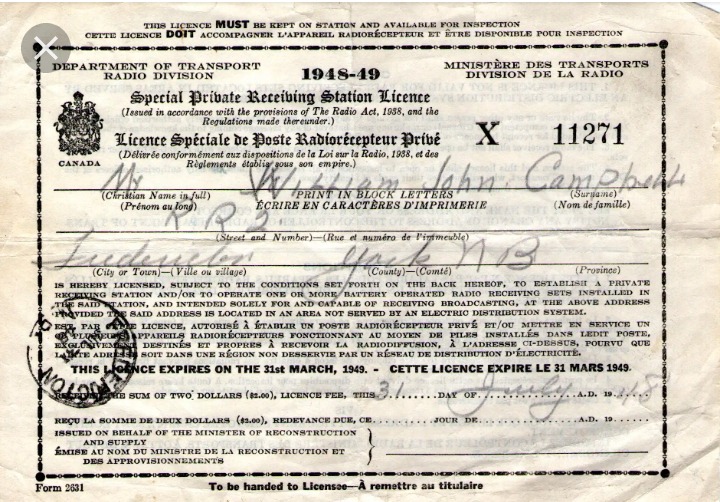 THIS LICENCE MUST BE KEPT ON STATION AND AVAILABLE FOR INSPECTION
CETTE LICENCE DOIT ACCOMPAGNER L'APPAREIL RADIORÉCEPTEUR ET ÊTRE DISPONIBLE POUR INSPECTION
DEPARTMENT OF TRANSPORT
RADIO DIVISION
1948-49
MINISTÈRE DES TRANSPORTS
DIVISION DE LA RADIO
Special Private Receiving Station Licence
(Issued in accordance with the provisions of The Radio Act, 1938, and the
Regulations made thereunder.)
Licence Spéciale de Poste Radiorécepteur Privé
(Délivrée conformément aux dispositions de la Loi sur la Radio, 1938, et des
Règlements établis sous son empire.)
X 11271
CANADA
Mr William John Campbell
(Christian Name in full) PRINT IN BLOCK LETTERS (Surname)
(Prénom au long) ÉCRIRE EN CARACTÈRES D'IMPRIMERIE (Nom de famille)
R R 3
(Street and Number)—(Rue et numéro de l'immeuble)
Fredericton York N B
(City or Town)—(Ville ou village) (County)—(Comté) (Province)
IS HEREBY LICENSED, SUBJECT TO THE CONDITIONS SET FORTH ON THE BACK HEREOF, TO ESTABLISH A PRIVATE
RECEIVING STATION AND/OR TO OPERATE ONE OR MORE BATTERY OPERATED RADIO RECEIVING SETS INSTALLED IN
THE SAID STATION, AND INTENDED SOLELY FOR AND CAPABLE OF RECEIVING BROADCASTING, AT THE ABOVE ADDRESS
PROVIDED THE SAID ADDRESS IS LOCATED IN AN AREA NOT SERVED BY AN ELECTRIC DISTRIBUTION SYSTEM.
EST, PAR CETTE LICENCE, AUTORISÉ À ÉTABLIR UN POSTE RADIORÉCEPTEUR PRIVÉ ET/OU METTRE EN SERVICE UN
OU PLUSIEURS APPAREILS RADIORÉCEPTEURS FONCTIONNANT AU MOYEN DE PILES INSTALLÉS DANS LEDIT POSTE,
EXCLUSIVEMENT DESTINÉS ET PROPRES À RECEVOIR LA RADIODIFFUSION, À L'ADRESSE CI-DESSUS, POURVU QUE
LADITE ADRESSE SOIT DANS UNE RÉGION NON DESSERVIE PAR UN RÉSEAU DE DISTRIBUTION D'ÉLECTRICITÉ.
THIS LICENCE EXPIRES ON THE 31st MARCH, 1949. - CETTE LICENCE EXPIRE LE 31 MARS 1949.
RECEIVED THE SUM OF TWO DOLLARS ($2.00), LICENCE FEE, THIS 31 DAY OF July A.D. 1948
REÇU LA SOMME DE DEUX DOLLARS ($2.00), REDEVANCE DUE, CE JOUR DE A.D. 19
ISSUED ON BEHALF OF THE MINISTER OF RECONSTRUCTION
AND SUPPLY
ÉMISE AU NOM DU MINISTRE DE LA RECONSTRUCTION ET
DES APPROVISIONNEMENTS
FREDERICTON
Form 2631
To be handed to Licensee—À remettre au titulaire